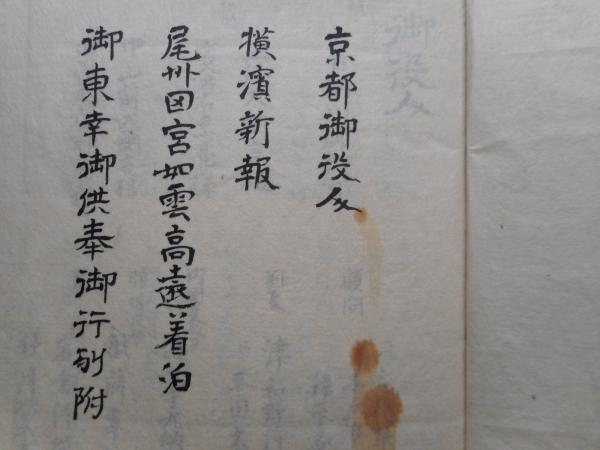 京都御役人
横濱新報
尾州田宮如雲高遠着泊
御東幸御供奉御行列附